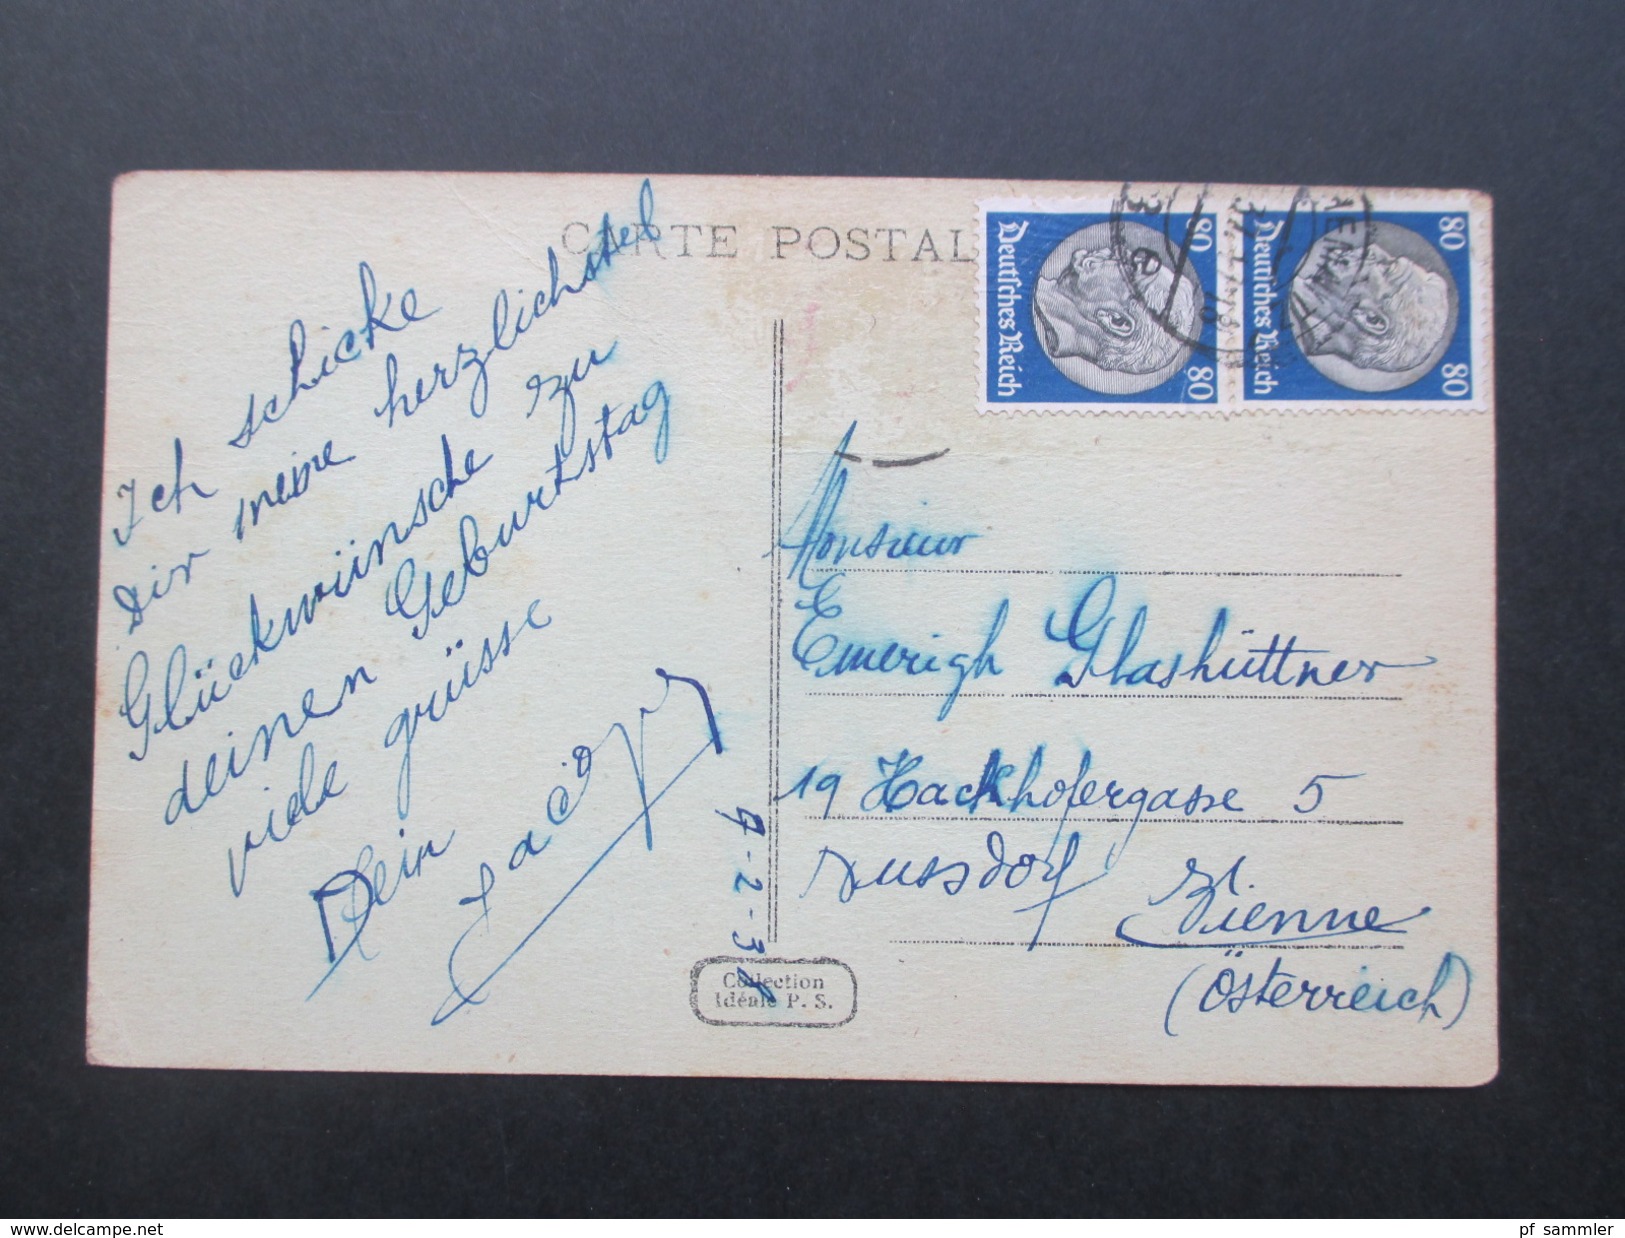 CARTE POSTAL
Ich schicke
Dir meine herzlichsten
Glückwünsche zu
deinen Geburtstag
viele grüsse
Dein
9-2-34
Collection
Idéale P. S.
80
Deutsches Reich
80
80
Deutsches Reich
80
Monsieur
Emerigh Glashüttner
19 Hackhofergasse 5
Nussdorf Vienne
(Österreich)
www.delcampe.net
pf_sammler_